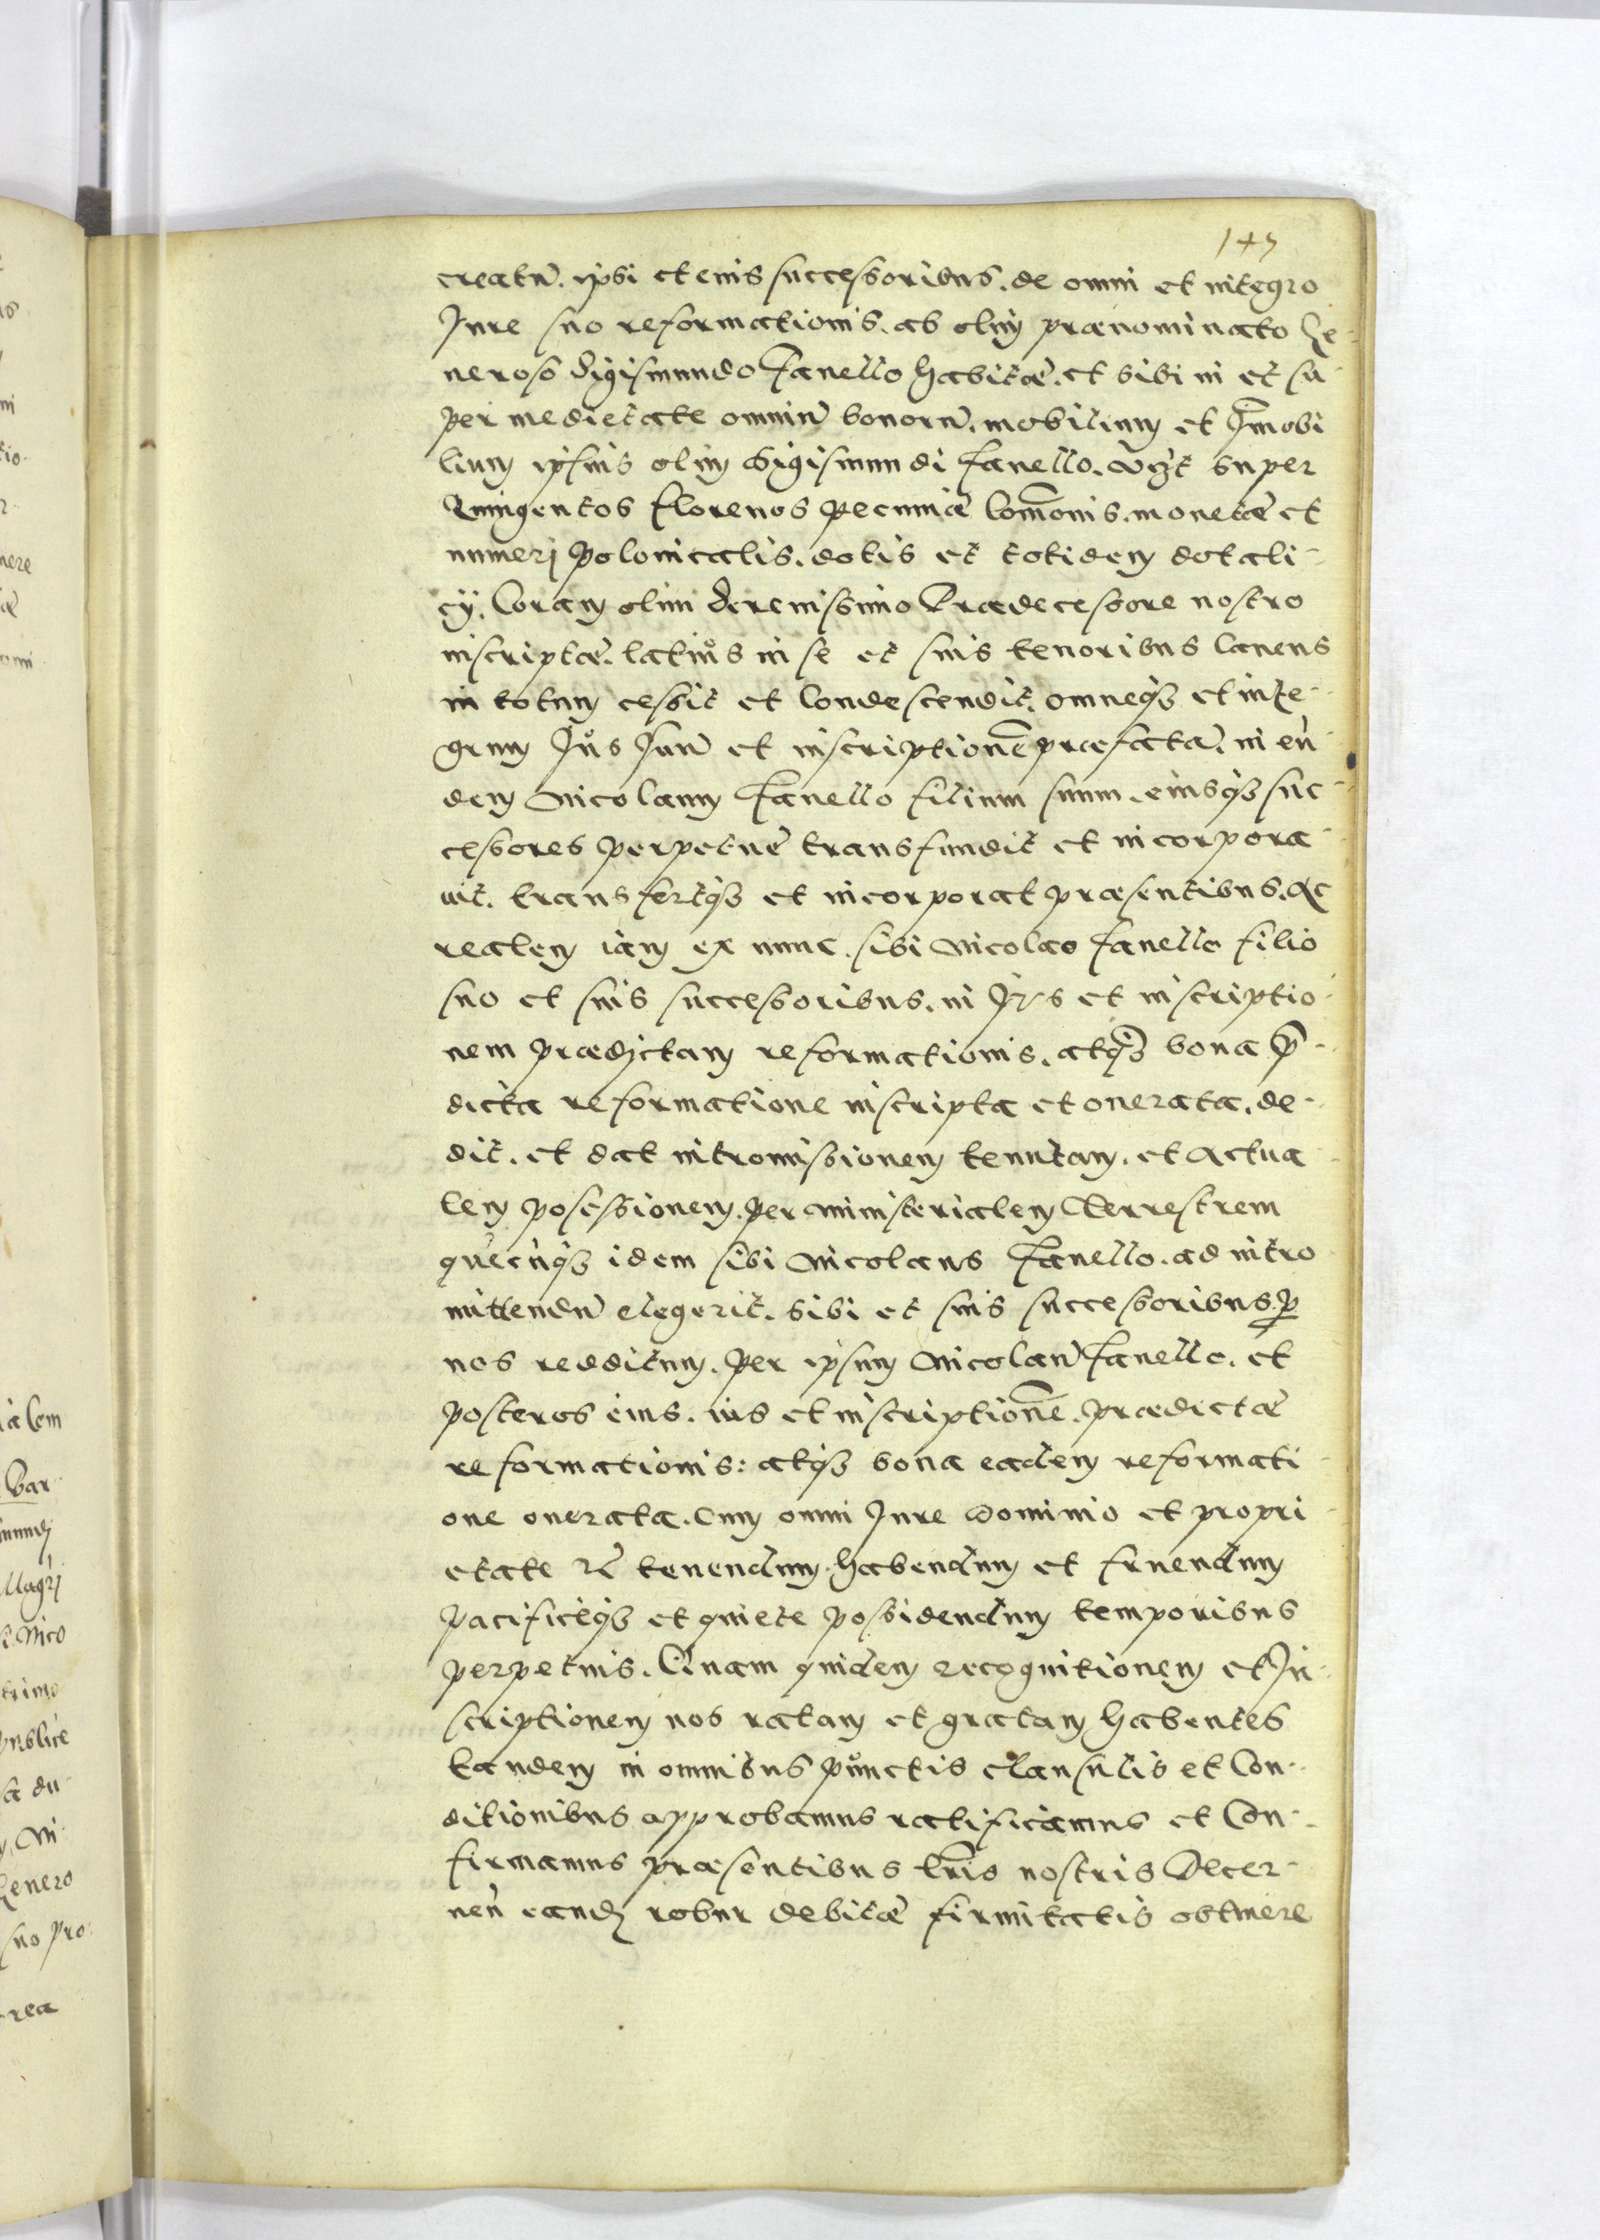 147
creatū. ipsi et eius successoribus. de omni et integro
Jure suo reformationis. ab olim prænominato Ge-
neroso Sigismundo Fanello habitæ. et sibi in et su-
per medietate omniū bonorū. mobilium et Im̄obi
lium ipsius olim Sigismundi Fanello. vigt super
Quingentos Florenos pecuniæ Com̄onis. monetæ et
numeri polonicalis. dotis et totidem dotali-
cij. Coram olim Serenissimo Prædecessore nostro
inscriptæ. latius in se et suis tenoribus Canens
in totum cessit et Condescendit. omneq3 et inte-
grum Jus suū et inscriptionē præfatā. in eū
dem Nicolaum Fanello filium suum. eiusq3 suc-
cessores perpetuè transfundit et incorpora-
uit. transfertq3 et incorporat præsentibus. Ac
realem iam ex nunc. sibi Nicolao Fanello filio
suo et suis successoribus. in Jus et inscriptio-
nem prædictam reformationis. atq3 bona p̄-
dicta reformatione inscripta et onerata. de-
dit. et dat intromissionem tenutam. et Actua-
lem possessionem. per Ministerialem Terrestrem
quēcūq3 idem sibi Nicolaus Fanello. ad intro
mittendū elegerit. sibi et suis successoribus. p
nos redditum. per ipsum Nicolaū Fanello. et
posteros eius. ius et inscriptionē. prædictæ
reformationis: atq3 bona eadem reformati-
one onerata. Cum omni Jure Dominio et propri-
etate tenendum. habendum et fruendum
pacificeq3 et quiete possidendum temporibus
perpetuis. Quam quidem recognitionem et In-
scriptionem nos ratam et gratam habentes
tandem in omnibus punctis clausulis et Con-
ditionibus approbamus ratificamus et Con-
firmamus præsentibus lr̄is nostris Decer-
nen̄ eandem robur debitæ firmitatis obtinere